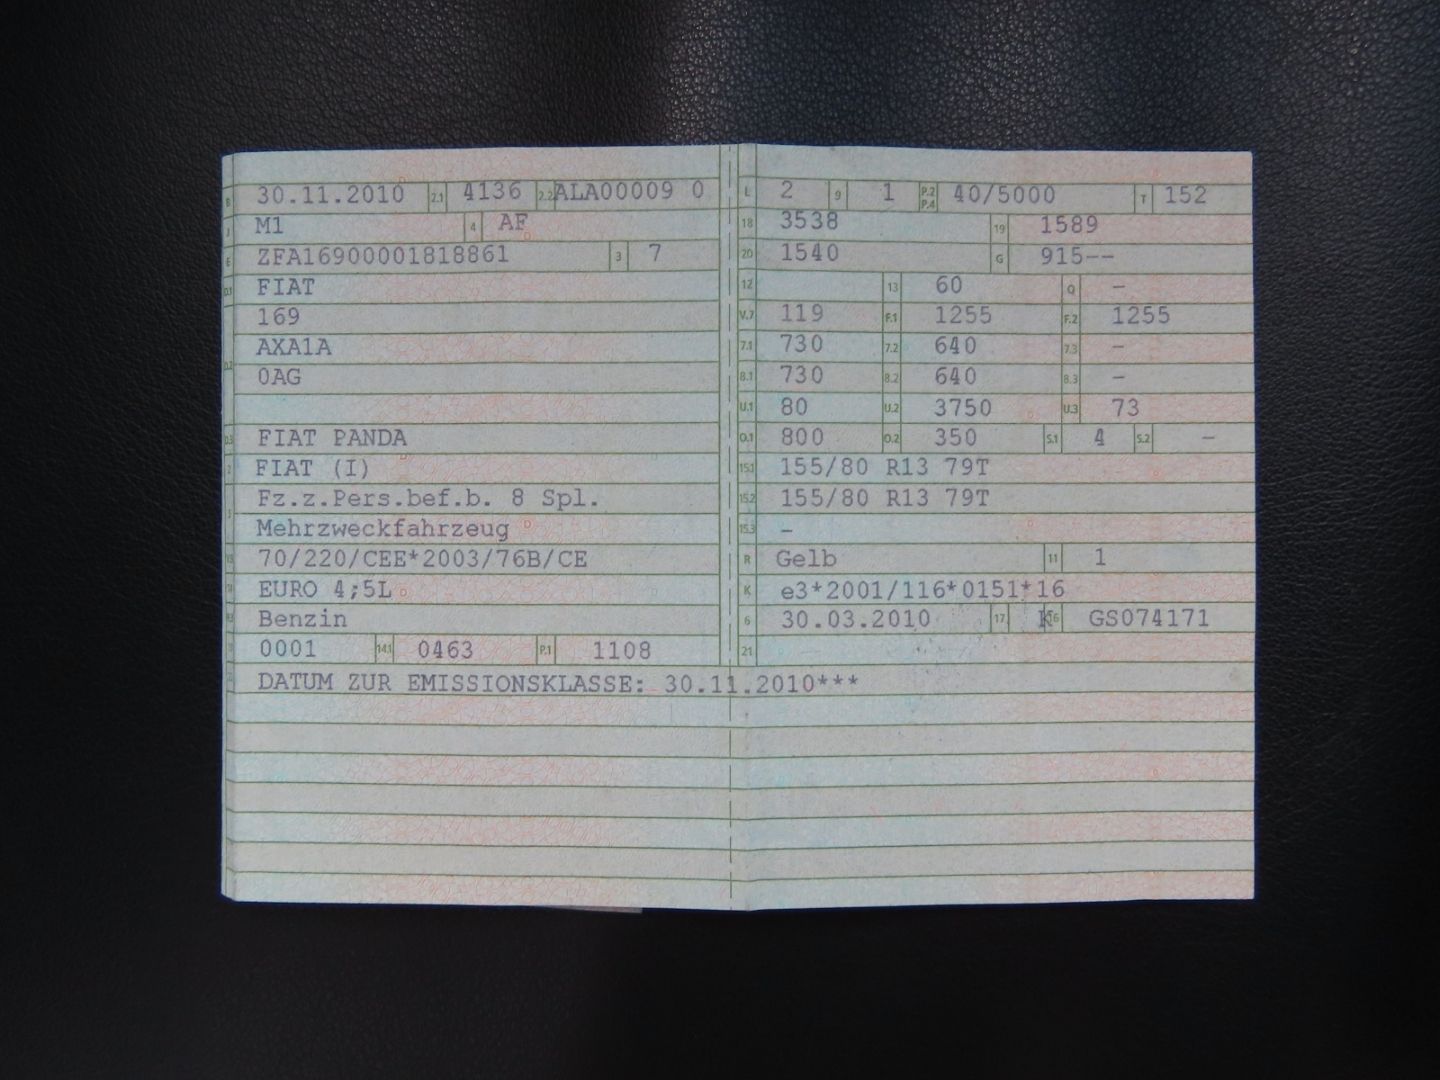 B 30.11.2010 2.1 4136 2.2 ALA00009 0
J M1 4 AF
E ZFA16900001818861 3 7
D.1 FIAT
169
AXA1A
D.2
0AG
D.3 FIAT PANDA
2 FIAT (I)
Fz.z.Pers.bef.b. 8 Spl.
5
Mehrzweckfahrzeug
70/220/CEE*2003/76B/CE
14 EURO 4;5L
P.3 Benzin
10 0001 14.1 0463 P.1 1108
L 2 9 1 P.2 P.4 40/5000 T 152
18 3538 19 1589
20 1540 G 915--
12 13 60 Q -
V.7 119 F.1 1255 F.2 1255
7.1 730 7.2 640 7.3 -
8.1 730 8.2 640 8.3 -
U.1 80 U.2 3750 U.3 73
O.1 800 O.2 350 S.1 4 S.2 -
15.1 155/80 R13 79T
15.2 155/80 R13 79T
15.3 -
R Gelb 11 1
K e3*2001/116*0151*16
6 30.03.2010 17 K 16 GS074171
21
22 DATUM ZUR EMISSIONSKLASSE: 30.11.2010***